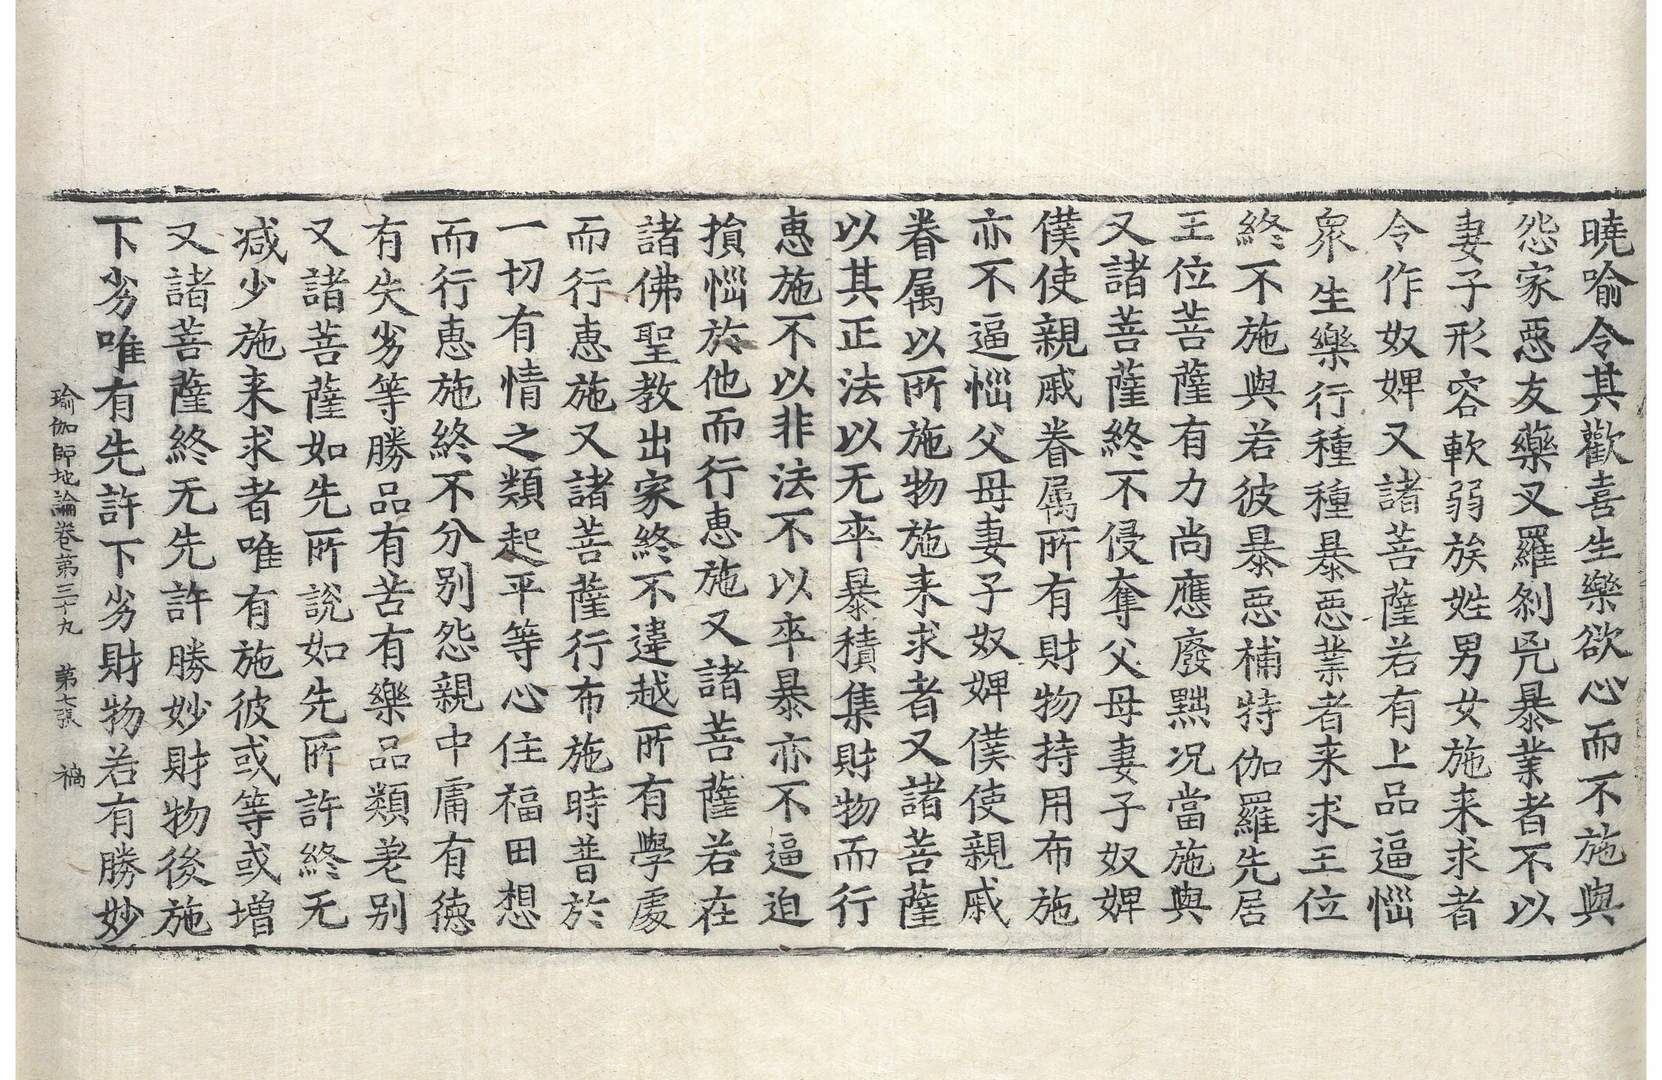 曉喻令其歡喜生樂欲心而不施與
怨家惡友藥叉羅刹兇暴業者不以
妻子形容軟弱族姓男女施来求者
令作奴婢又諸菩薩若有上品逼惱
衆生樂行種種暴惡業者来求王位
終不施與若彼暴惡補特伽羅先居
王位菩薩有力尚應廢黜况當施與
又諸菩薩終不侵奪父母妻子奴婢
僕使親戚眷属所有財物持用布施
亦不逼惱父母妻子奴婢僕使親戚
眷属以所施物施来求者又諸菩薩
以其正法以无卒暴積集財物而行
惠施不以非法不以卒暴亦不逼迫
損惱於他而行惠施又諸菩薩若在
諸佛聖教出家終不違越所有學處
而行惠施又諸菩薩行布施時普於
一切有情之類起平等心住福田想
而行惠施終不分别怨親中庸有德
有失劣等勝品有苦有樂品類差别
又諸菩薩如先所說如先所許終无
减少施来求者唯有施彼或等或增
又諸菩薩終无先許勝妙財物後施
下劣唯有先許下劣財物若有勝妙
瑜伽師地論卷第三十九　第七張　稿